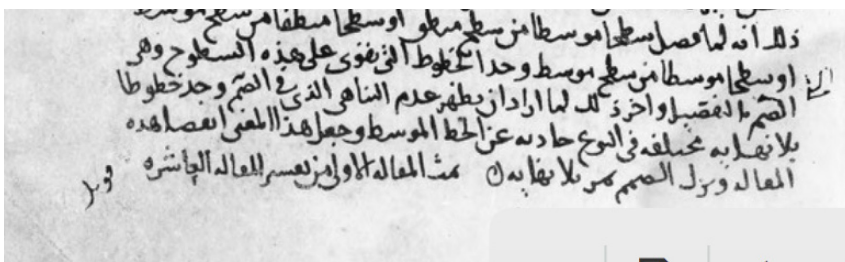 ذلك انه لما فصل سطحا موسطا من سطح منطق او سطحا منطقا من سطح موسط
او سطحا موسطا من سطح موسط وحد الخطوط التى تقوى على هذه السطوح وهى
الصم بالتفصيل واخر ذلك لما اراد ان يظهر عدم التناهى الذى فى الصم وجد خطوطا
بلا نهايه مختلفه فى النوع حادثه عن الخط الموسط وجعل هذا المعنى انقضا هذه
المقاله وترك الصمم يمر بلا نهايه تمت المقاله الاولى من تفسير المقاله العاشره